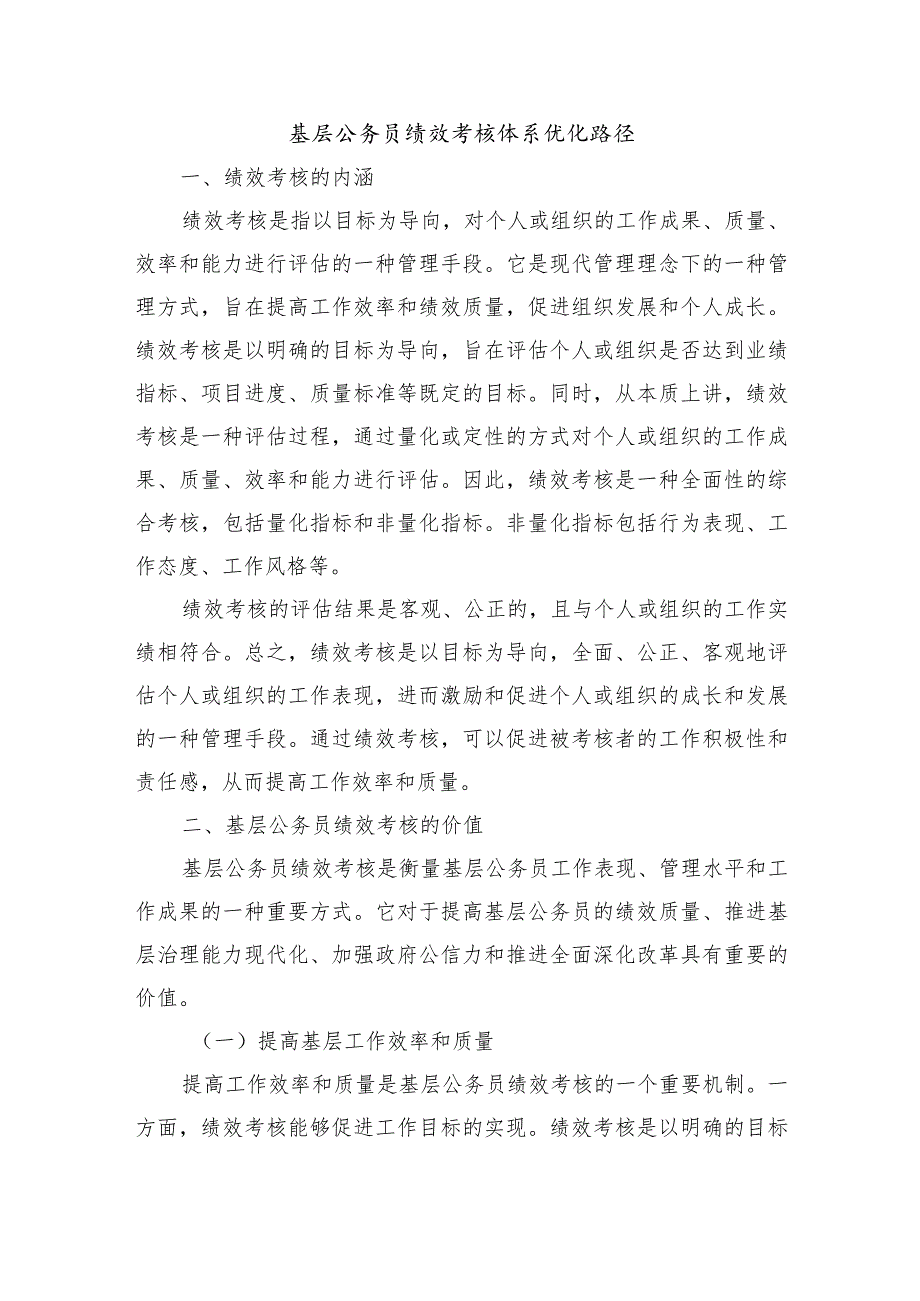 基层公务员绩效考核体系优化路径
一、绩效考核的内涵
绩效考核是指以目标为导向，对个人或组织的工作成果、质量、
效率和能力进行评估的一种管理手段。它是现代管理理念下的一种管
理方式，旨在提高工作效率和绩效质量，促进组织发展和个人成长。
绩效考核是以明确的目标为导向，旨在评估个人或组织是否达到业绩
指标、项目进度、质量标准等既定的目标。同时，从本质上讲，绩效
考核是一种评估过程，通过量化或定性的方式对个人或组织的工作成
果、质量、效率和能力进行评估。因此，绩效考核是一种全面性的综
合考核，包括量化指标和非量化指标。非量化指标包括行为表现、工
作态度、工作风格等。
绩效考核的评估结果是客观、公正的，且与个人或组织的工作实
绩相符合。总之，绩效考核是以目标为导向，全面、公正、客观地评
估个人或组织的工作表现，进而激励和促进个人或组织的成长和发展
的一种管理手段。通过绩效考核，可以促进被考核者的工作积极性和
责任感，从而提高工作效率和质量。
二、基层公务员绩效考核的价值
基层公务员绩效考核是衡量基层公务员工作表现、管理水平和工
作成果的一种重要方式。它对于提高基层公务员的绩效质量、推进基
层治理能力现代化、加强政府公信力和推进全面深化改革具有重要的
价值。
（一）提高基层工作效率和质量
提高工作效率和质量是基层公务员绩效考核的一个重要机制。一
方面，绩效考核能够促进工作目标的实现。绩效考核是以明确的目标